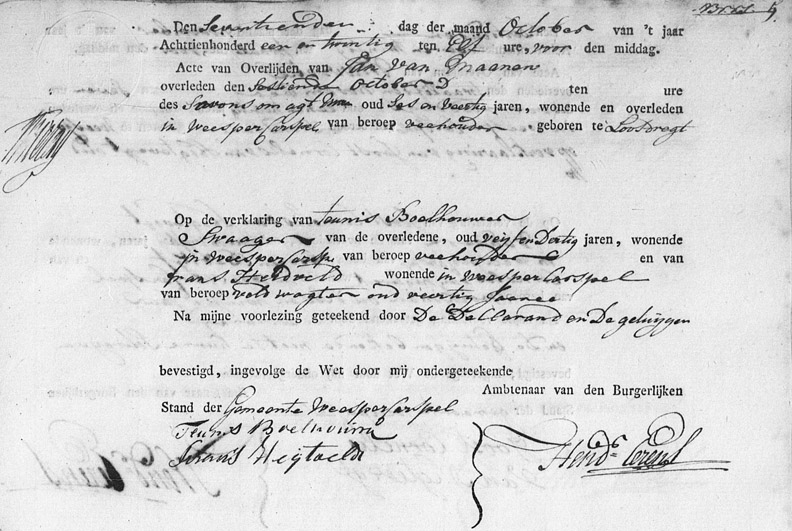 Den Seventienden dag der maand October van 't jaar
Achttienhonderd een en twintig ten Elf ure, voor den middag.
Acte van Overlijden van Jan van Maanen
overleden den Sestiende October ten ure
des Savons om agt oud Ses en Veertig jaren, wonende en overleden
in Weesper Carspel van beroep veehouder geboren te Loosdregt
Op de verklaring van Teunis Boelhouwer
Swaager van de overledene, oud vijf en Dertig jaren, wonende
in Weesper Carspel van beroep veehouder en van
frans Heidveld wonende in Weesper Carspel
van beroep veld wagter oud veertig Jaaren
Na mijne voorlezing geteekend door De Declarand en De getuijgen
bevestigd, ingevolge de Wet door mij ondergeteekende
Ambtenaar van den Burgerlijken
Stand der Gemeente Weesper Carspel
Teunis
frans Heijtveld
Hendk